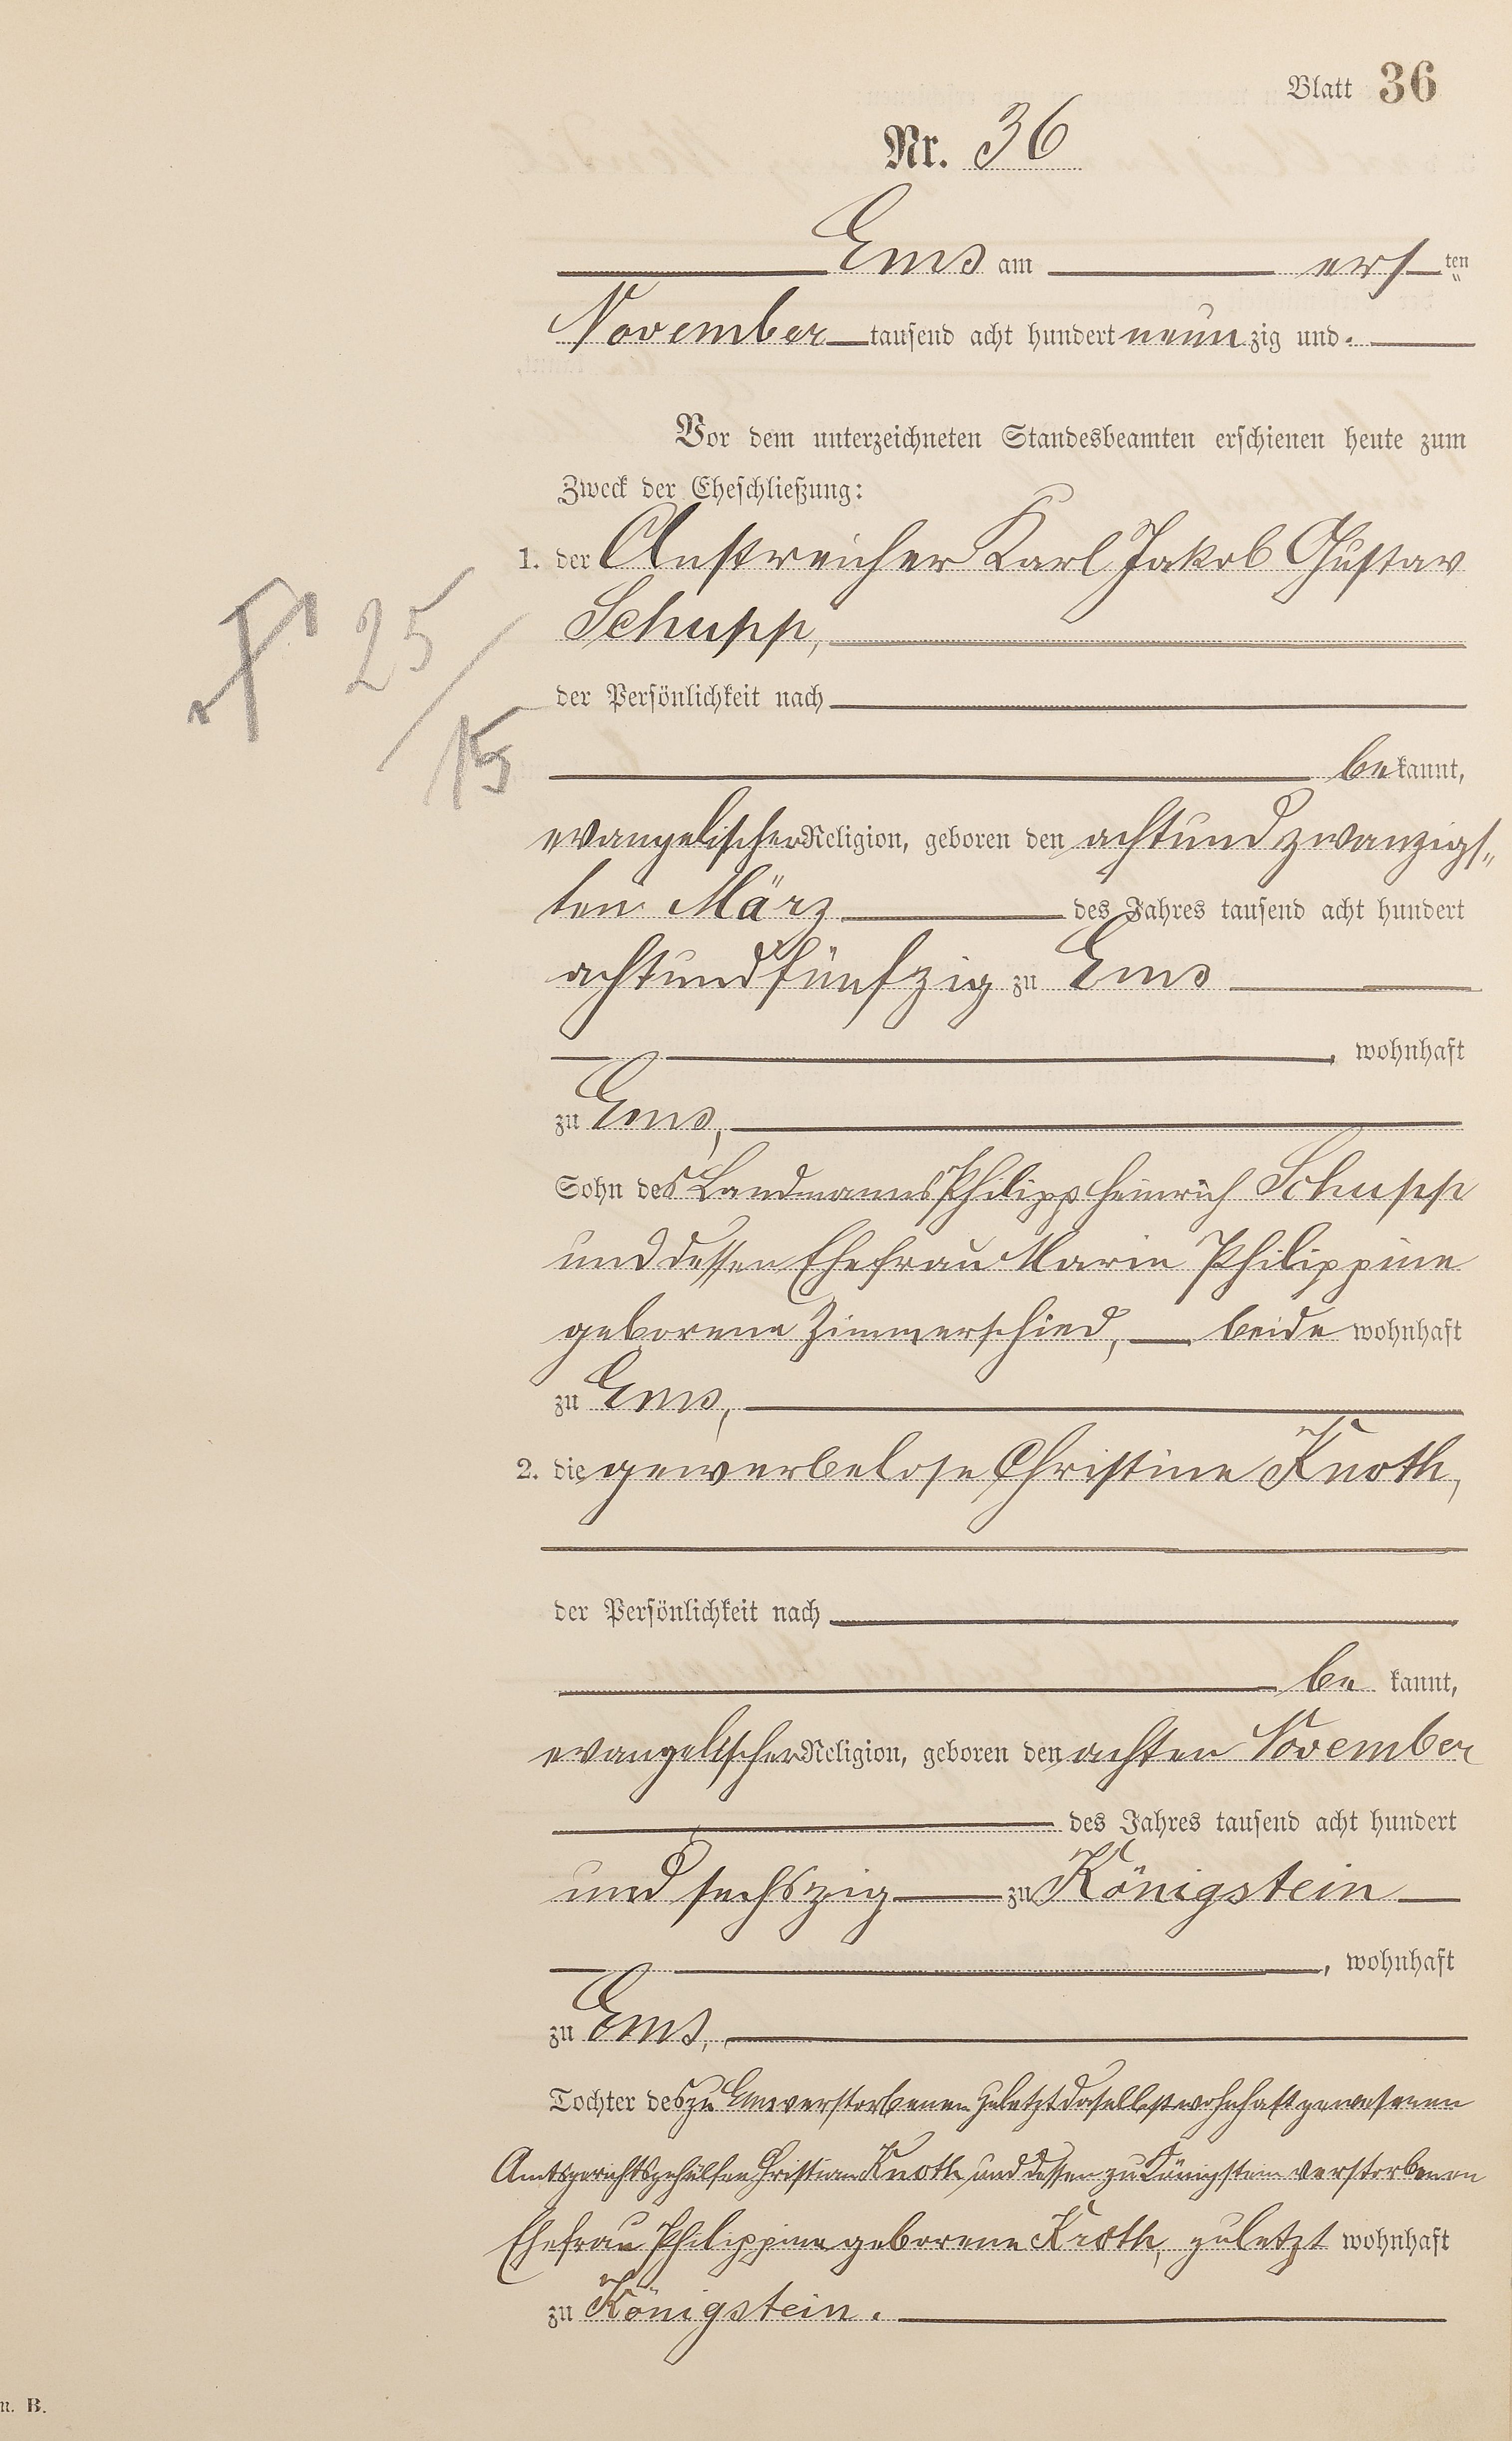 Blatt 36
Nr. 36
Ems am ers ten
November tausend acht hundert neun zig und.
Vor dem unterzeichneten Standesbeamten erschienen heute zum
Zweck der Eheschließung:
1. der Anstreicher Karl Jakob Gustav
Schupp,
der Persönlichkeit nach
be kannt,
evangelischer Religion, geboren den achtundzwanzigs„
ten März des Jahres tausend acht hundert
achtundfünfzig zu Ems
, wohnhaft
zu Ems,
Sohn des Landmanns Philipp Heinrich Schupp
und dessen Ehefrau Marie Philippine
geborene Zimmerschied, beide wohnhaft
zu Ems,
2. die gewerbelose Christine Knoth,
der Persönlichkeit nach
be kannt,
evangelischer Religion, geboren den achten November
des Jahres tausend acht hundert
und sechszig zu Königstein
, wohnhaft
zu Ems,
Tochter des zu Ems verstorbenen zuletzt daselbst wohnhaft gewesenen
Amtsgerichtsgehülfen Christian Knoth und dessen zu Königstein verstorbenen
Ehefrau Philippine geborene Kroth, zuletzt wohnhaft
zu Königstein.
25
15
u. B.